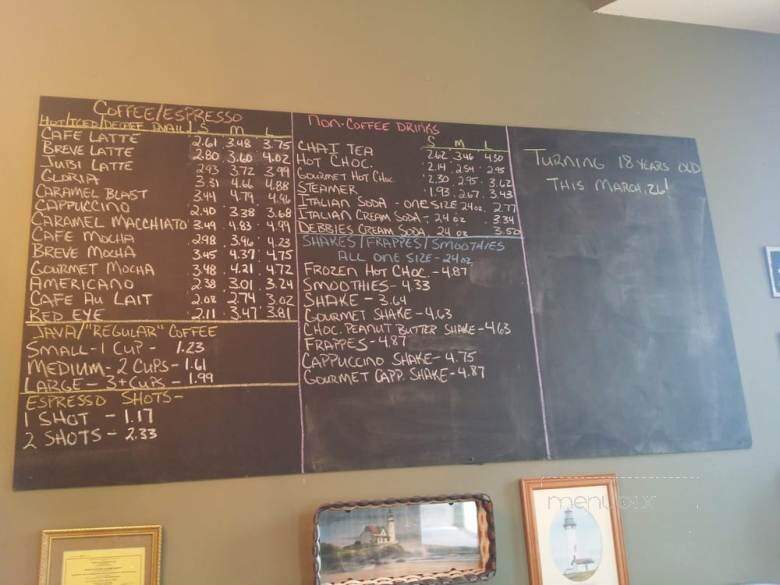 COFFEE/ESPRESSO
HOT/ICED/DECAFF AVAIL. S M L
CAFE LATTE 2.61 3.48 3.75
BREVE LATTE 2.80 3.60 4.02
JUBI LATTE 2.93 3.72 3.99
GLORIA 3.31 4.66 4.88
CARAMEL BLAST 3.44 4.79 4.96
CAPPUCCINO 2.40 3.38 3.68
CARAMEL MACCHIATO 3.49 4.83 4.99
CAFE MOCHA 2.98 3.96 4.23
BREVE MOCHA 3.45 4.37 4.75
GOURMET MOCHA 3.48 4.21 4.72
AMERICANO 2.38 3.01 3.24
CAFE AU LAIT 2.08 2.74 3.02
RED EYE 2.11 3.47 3.81
JAVA/"REGULAR" COFFEE
SMALL-1 CUP - 1.23
MEDIUM- 2 CUPS- 1.61
LARGE - 3+CUPS - 1.99
ESPRESSO SHOTS-
1 SHOT - 1.17
2 SHOTS - 2.33
NON-COFFEE DRINKS
S M L
CHAI TEA 2.62 3.46 4.50
HOT CHOC. 2.14 2.54 2.95
GOURMET HOT CHOC. 2.30 2.95 3.62
STEAMER 1.93 2.67 3.43
ITALIAN SODA - ONE SIZE 24 oz. 2.77
ITALIAN CREAM SODA - 24 oz 3.34
DEBBIES CREAM SODA. 24 oz 3.50
SHAKES/FRAPPES/SMOOTHIES
ALL ONE SIZE-24 oz
FROZEN HOT CHOC. -4.87
SMOOTHIES -4.33
SHAKE - 3.64
GOURMET SHAKE -4.63
CHOC. PEANUT BUTTER SHAKE-4.63
FRAPPES -4.87
CAPPUCCINO SHAKE - 4.75
GOURMET CAPP. SHAKE-4.87
TURNING 18 YEARS OLD
THIS MARCH.26!
menupix